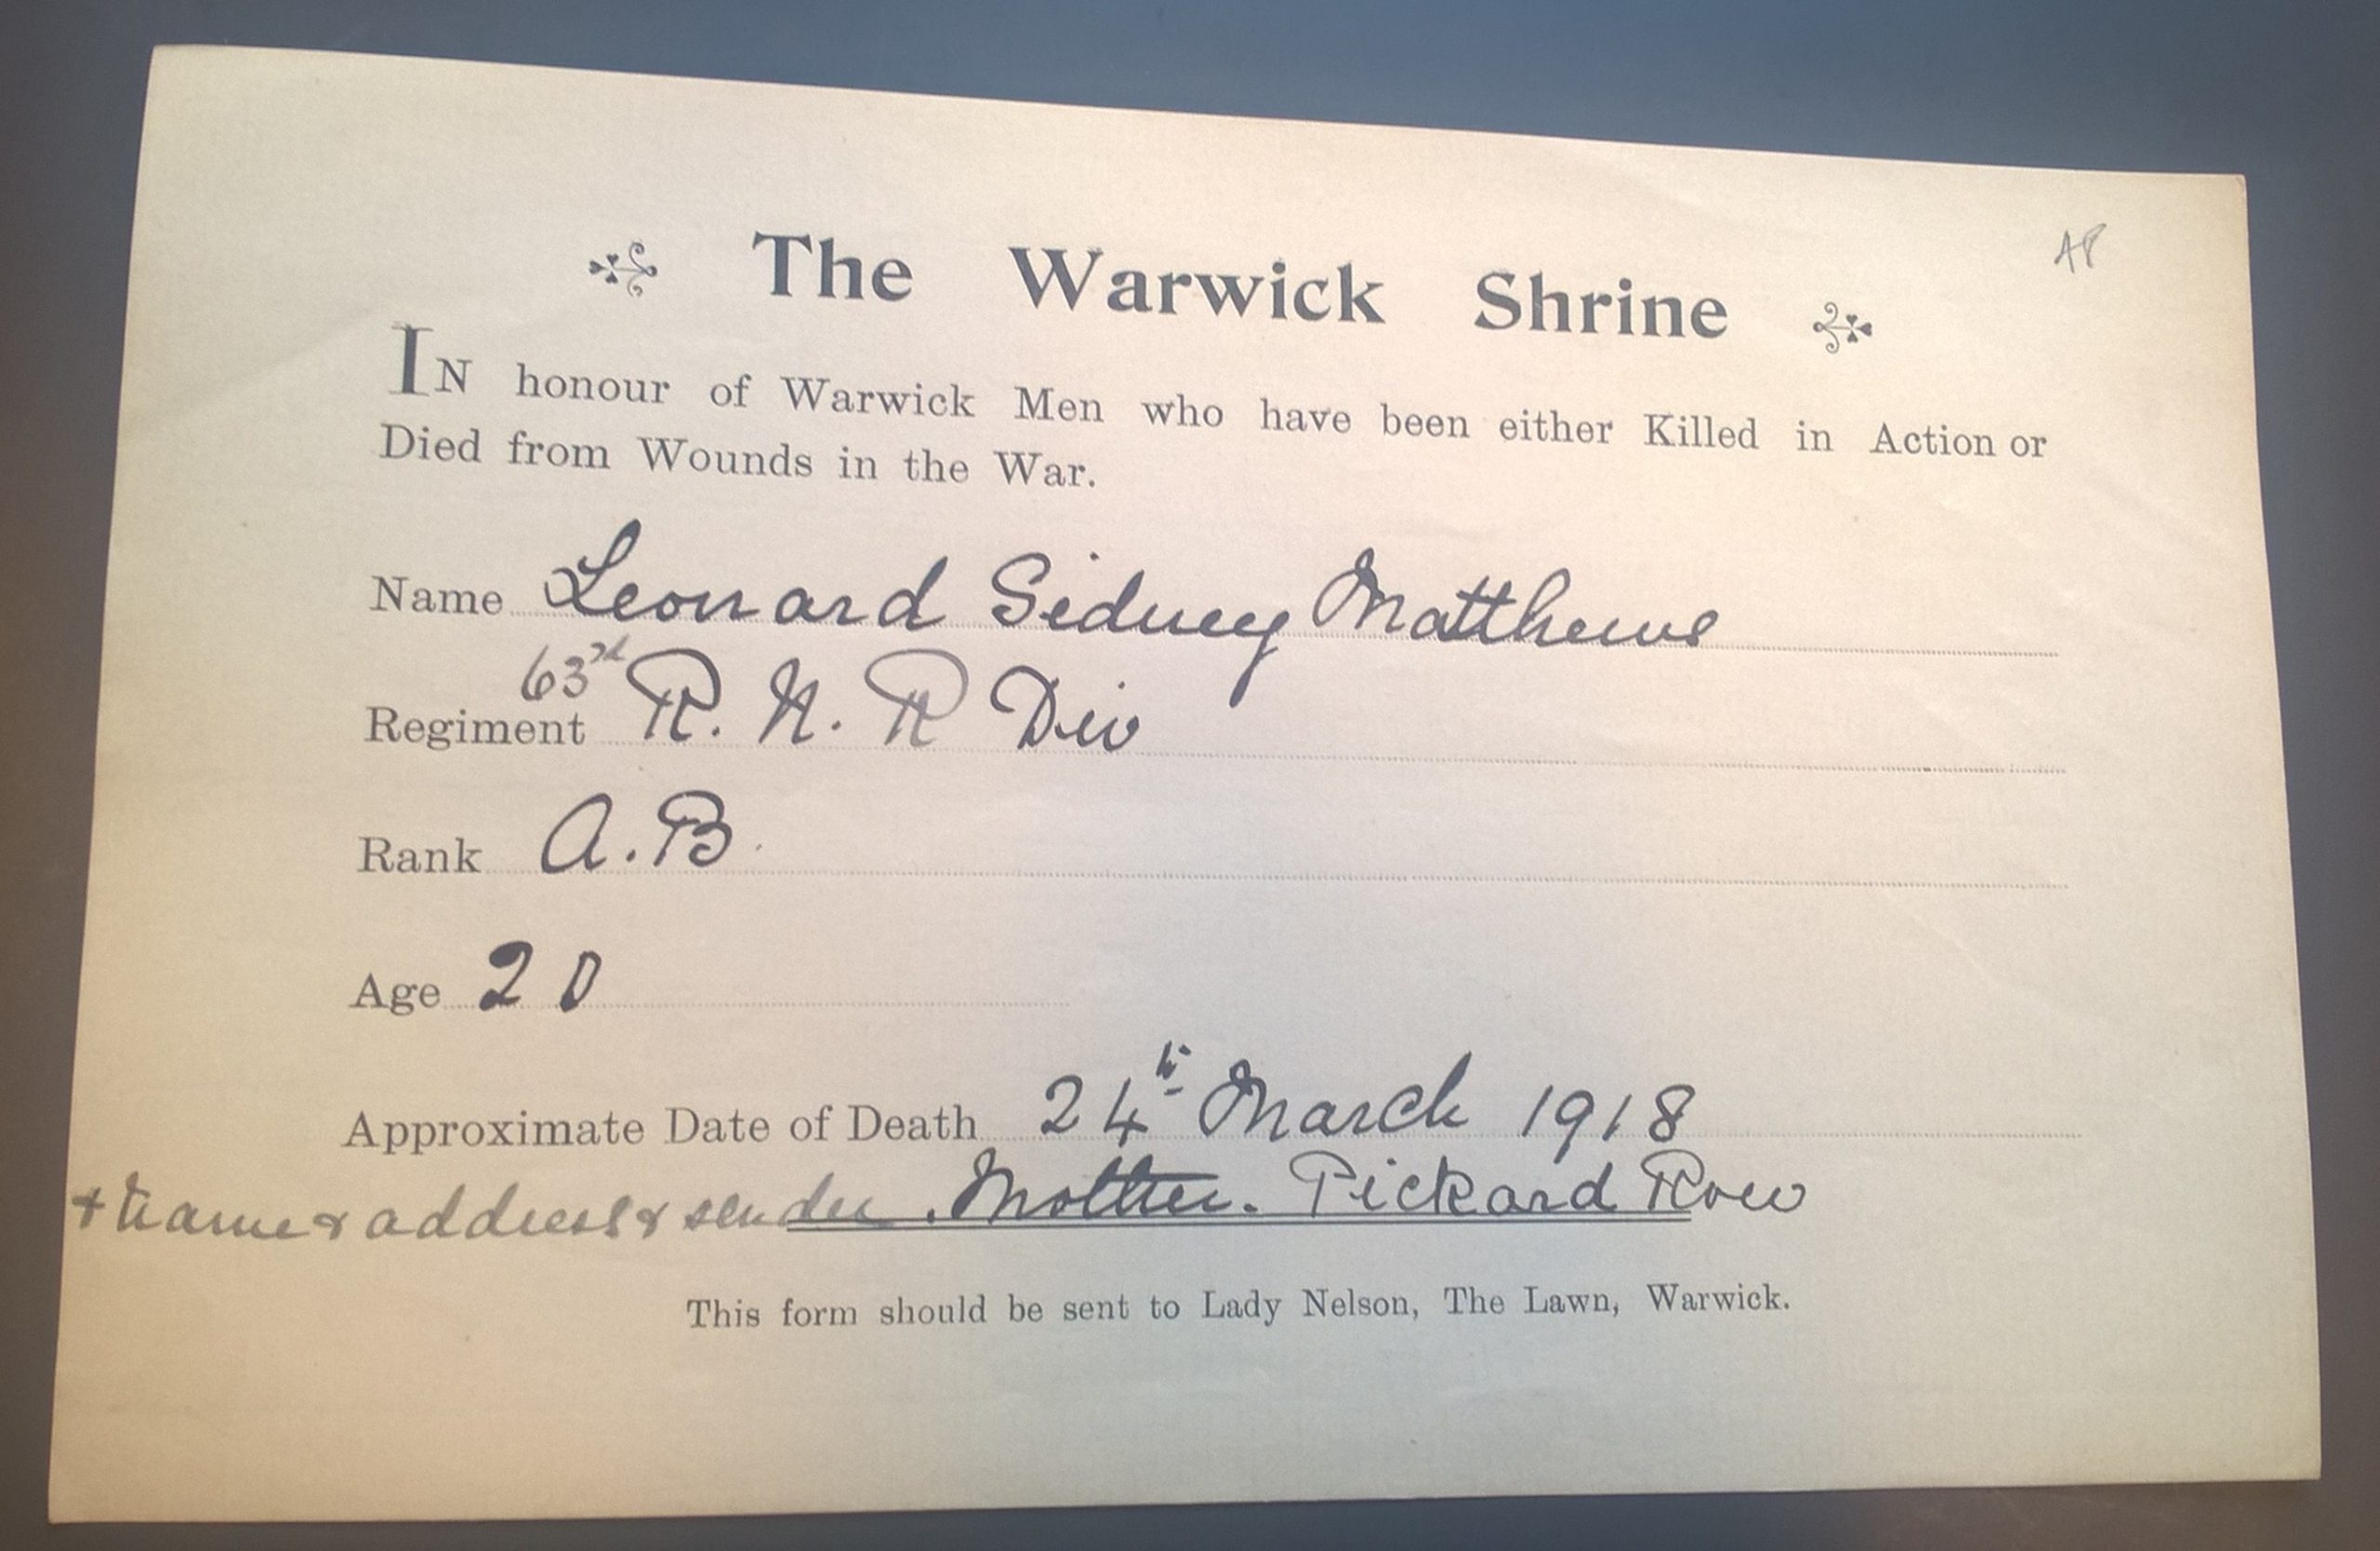 AP
The Warwick Shrine
IN honour of Warwick Men who have been either Killed in Action or
Died from Wounds in the War.
Name Leonard Sidney Matthews
63rd
Regiment R. N. R Div
Rank A.B.
Age 20
Approximate Date of Death 24th March 1918
+ Name & address & sender. Mother. Pickard Row
This form should be sent to Lady Nelson, The Lawn, Warwick.